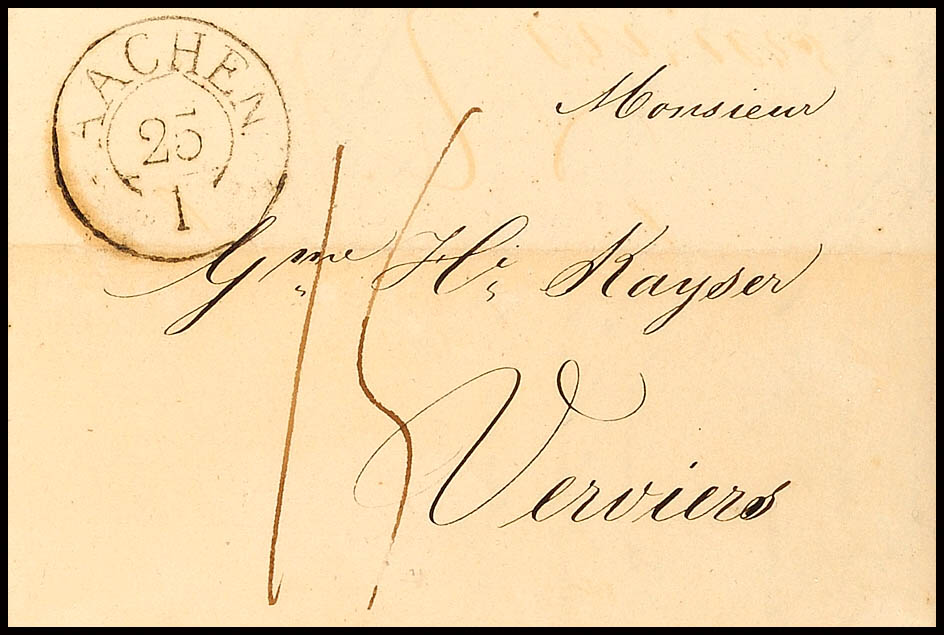 AACHEN
25
1
Monsieur
Gme Hi Kayser
Verviers
15